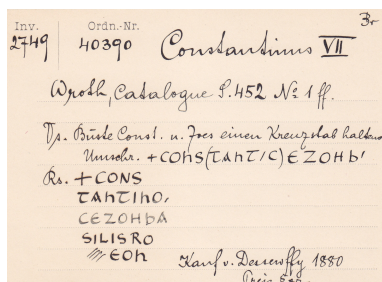 Inv. Ordn.-Nr. Br
2749 40390 Constantinus VII
Wroth, Catalogue S. 452 № 1 ff.
Vs. Büste Const. u. Zoes einen Kreuzstab haltend
Umschr. +CONS(TANTIC) EZOHЬ'
Rs. +CONS
TANTINO,
CEZOHЬA
SILISRO
MEON
Kauf v. Dessewffy 1880
Preis